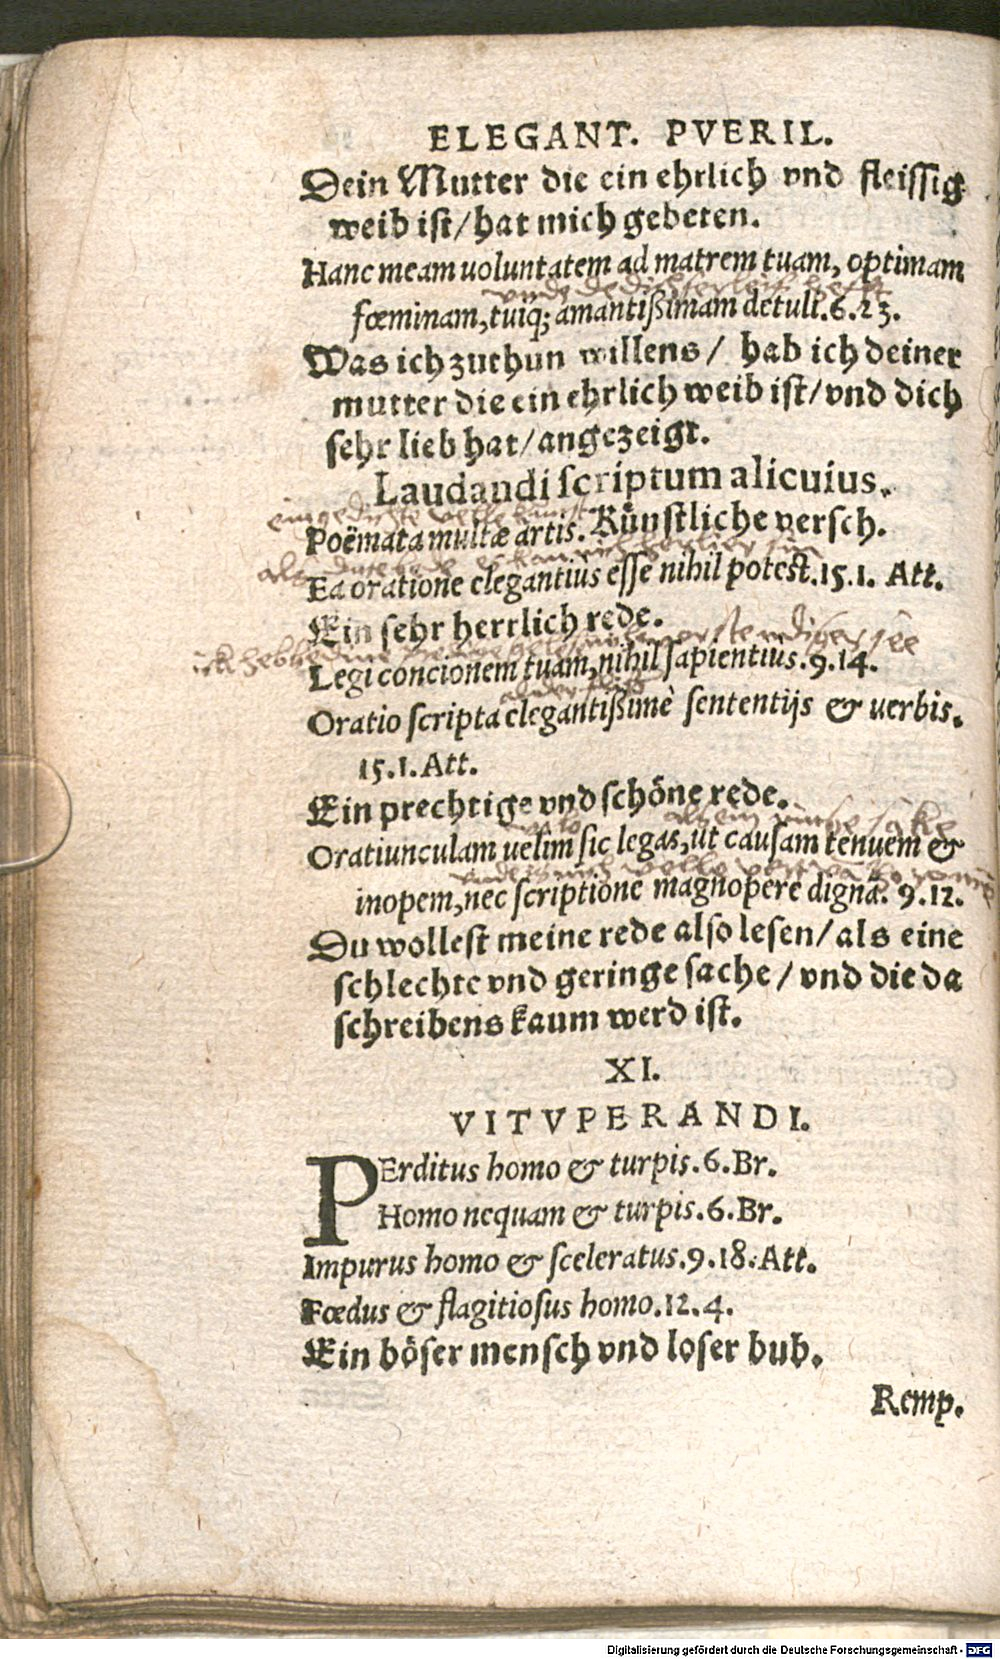 ELEGANT. PVERIL.
Dein Mutter die ein ehrlich vnd fleissig
weib ist/ hat mich gebeten.
Hanc meam uoluntatem ad matrem tuam, optimam
vnde de dich lieff hefft
fœminam, tuiq; amantißimam detuli. 6. 23.
Was ich zuthun willens / hab ich deiner
mutter die ein ehrlich weib ist/ vnd dich
sehr lieb hat/ angezeigt.
Laudandi scriptum alicuius.
ein gedichte velle kunst
Poëmata multæ artis. Künstliche versch.
als
Ea oratione elegantiùs esse nihil potest. 15. 1. Att.
Ein sehr herrlich rede.
ick hebbe dine
Legi concionem tuam, nihil sapientiùs. 9. 14.
Oratio scripta elegantißimè sententijs & uerbis.
15. 1. Att.
Ein prechtige vnd schöne rede.
als ein ringe sake
Oratiunculam uelim sic legas, ut causam tenuem &
inopem, nec scriptione magnopere dignã. 9. 12.
Du wollest meine rede also lesen/ als eine
schlechte vnd geringe sache / vnd die da
schreibens kaum werd ist.
XI.
VITVPERANDI.
PErditus homo & turpis. 6. Br.
Homo nequam & turpis. 6. Br.
Impurus homo & sceleratus. 9. 18. Att.
Fœdus & flagitiosus homo. 12. 4.
Ein böser mensch vnd loser bub.
Remp.
Digitalisierung gefördert durch die Deutsche Forschungsgemeinschaft - DFG